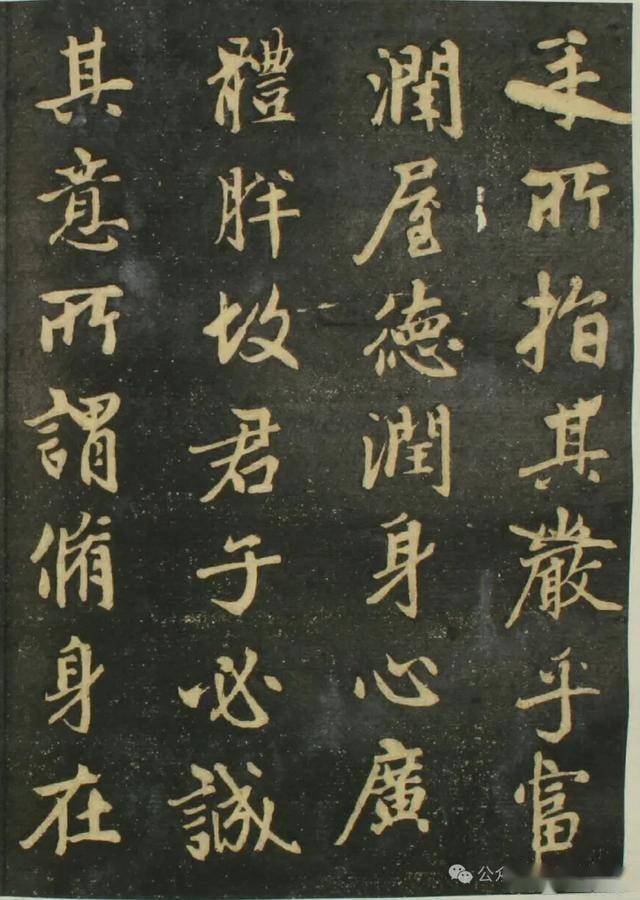 手所指其嚴乎富
潤屋德潤身心廣
體胖故君子必誠
其意所謂脩身在
公众